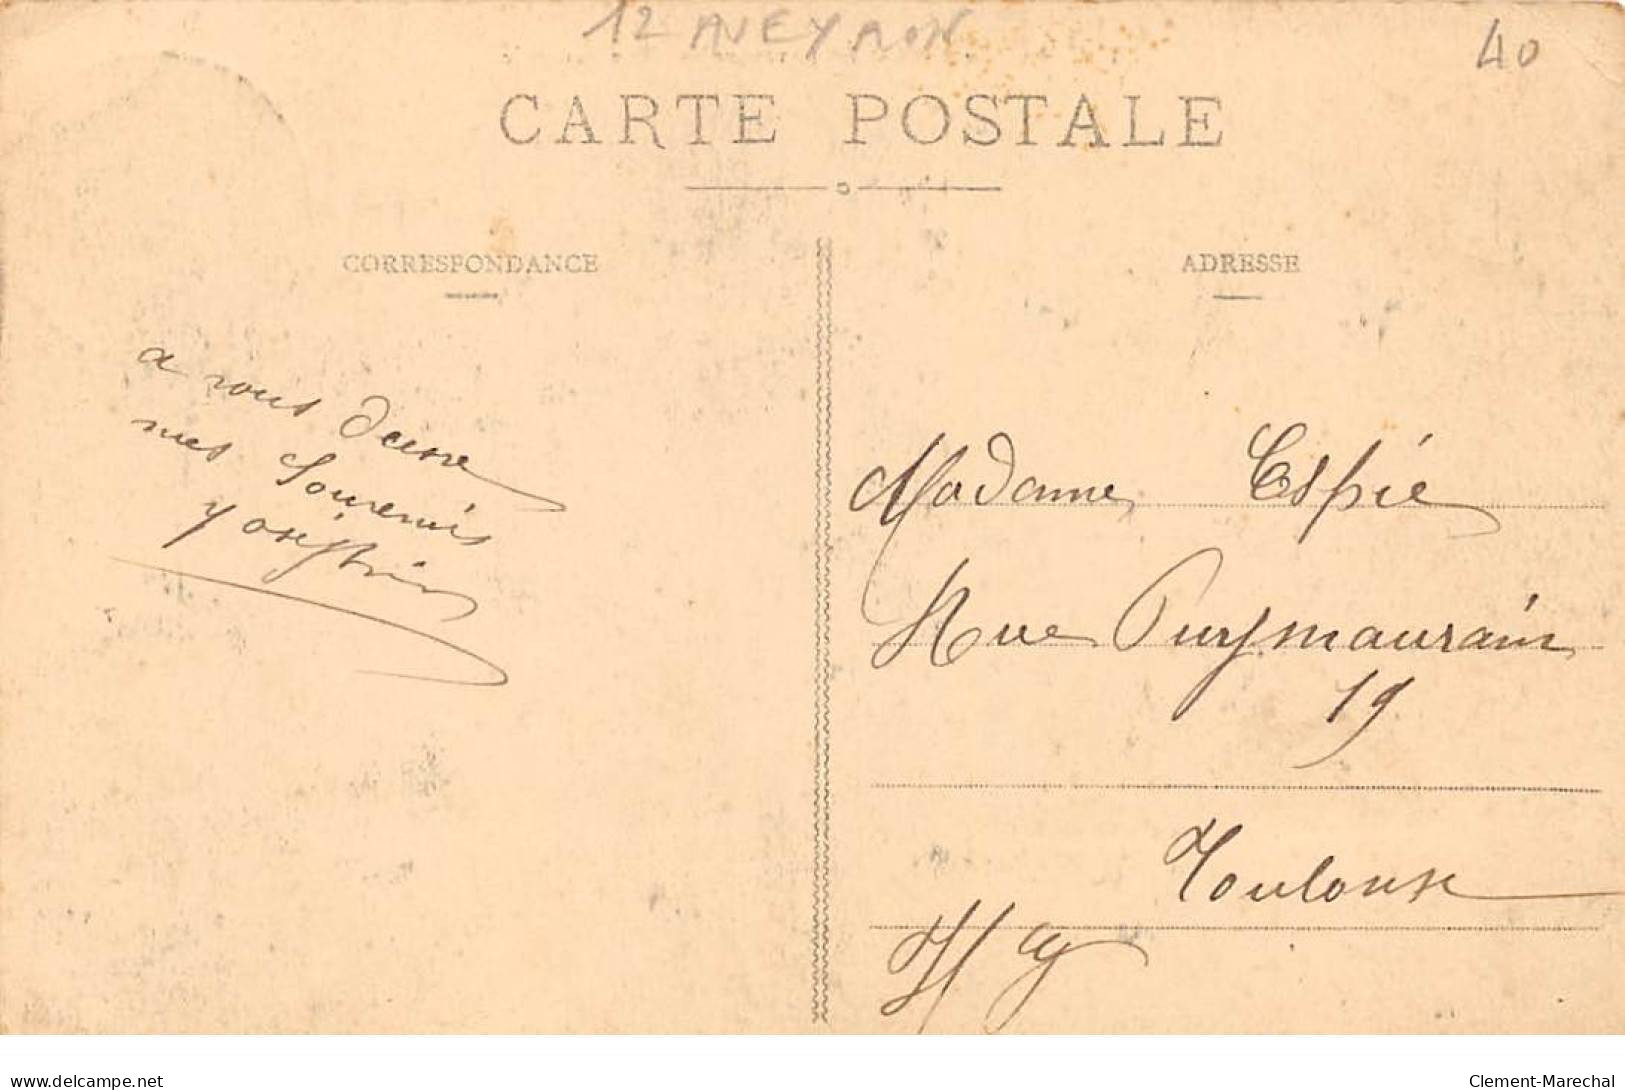 12 AVEYRON
40
CARTE POSTALE
CORRESPONDANCE
ADRESSE
a vous deux
mes Souvenirs
Madame Espie
Rue Puymaurain
19
Toulouse
H G
delcampe.net
Clement-Marechal